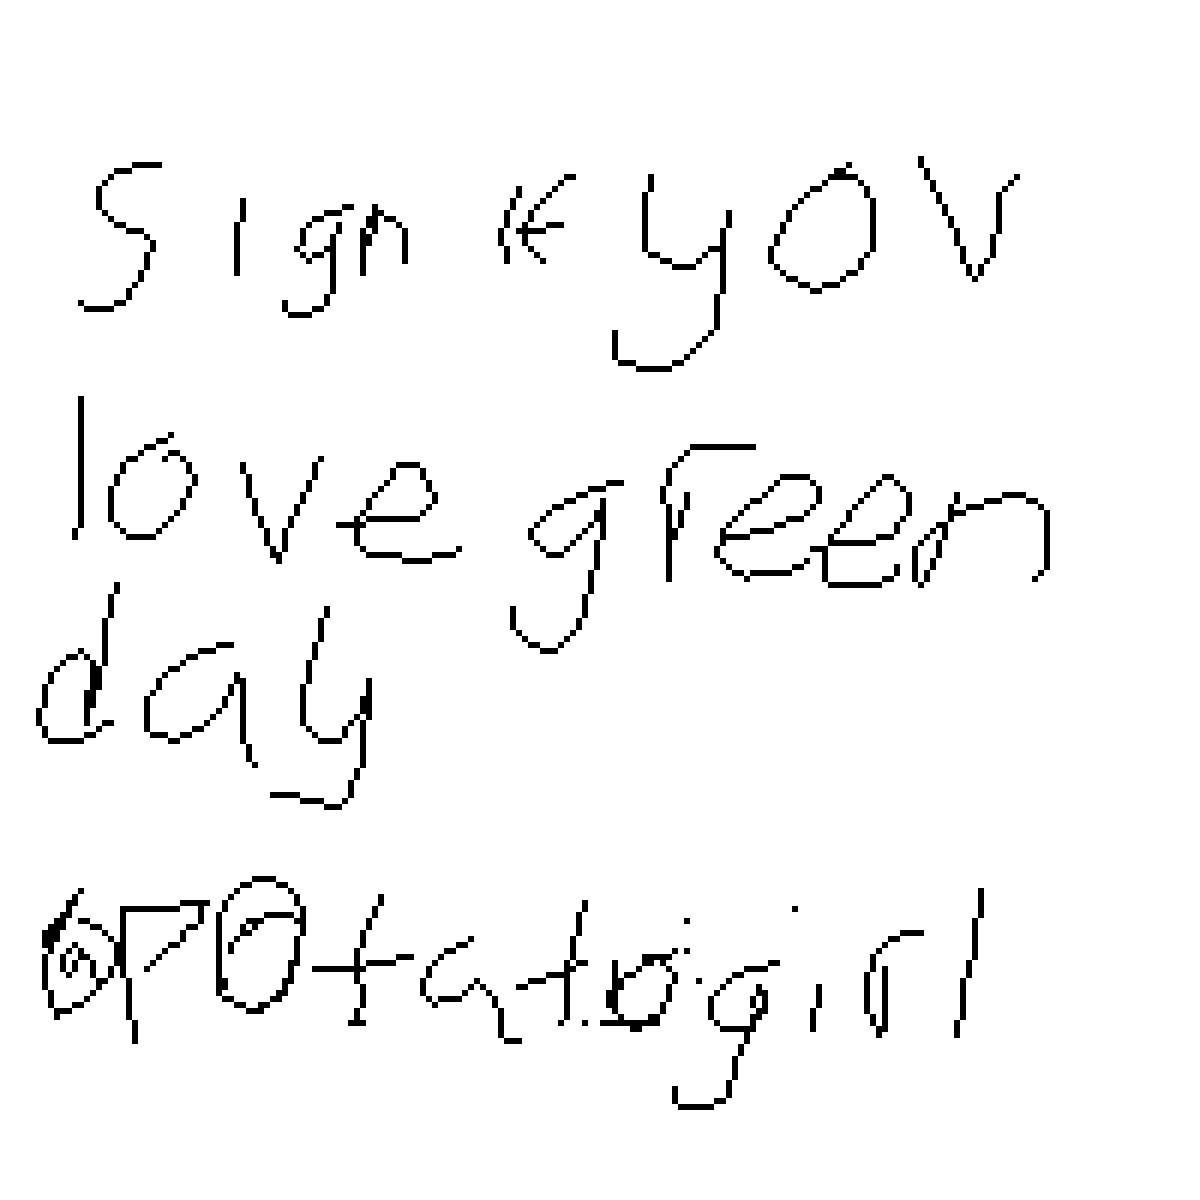 Sign if you
love green
day
@Potatogirl